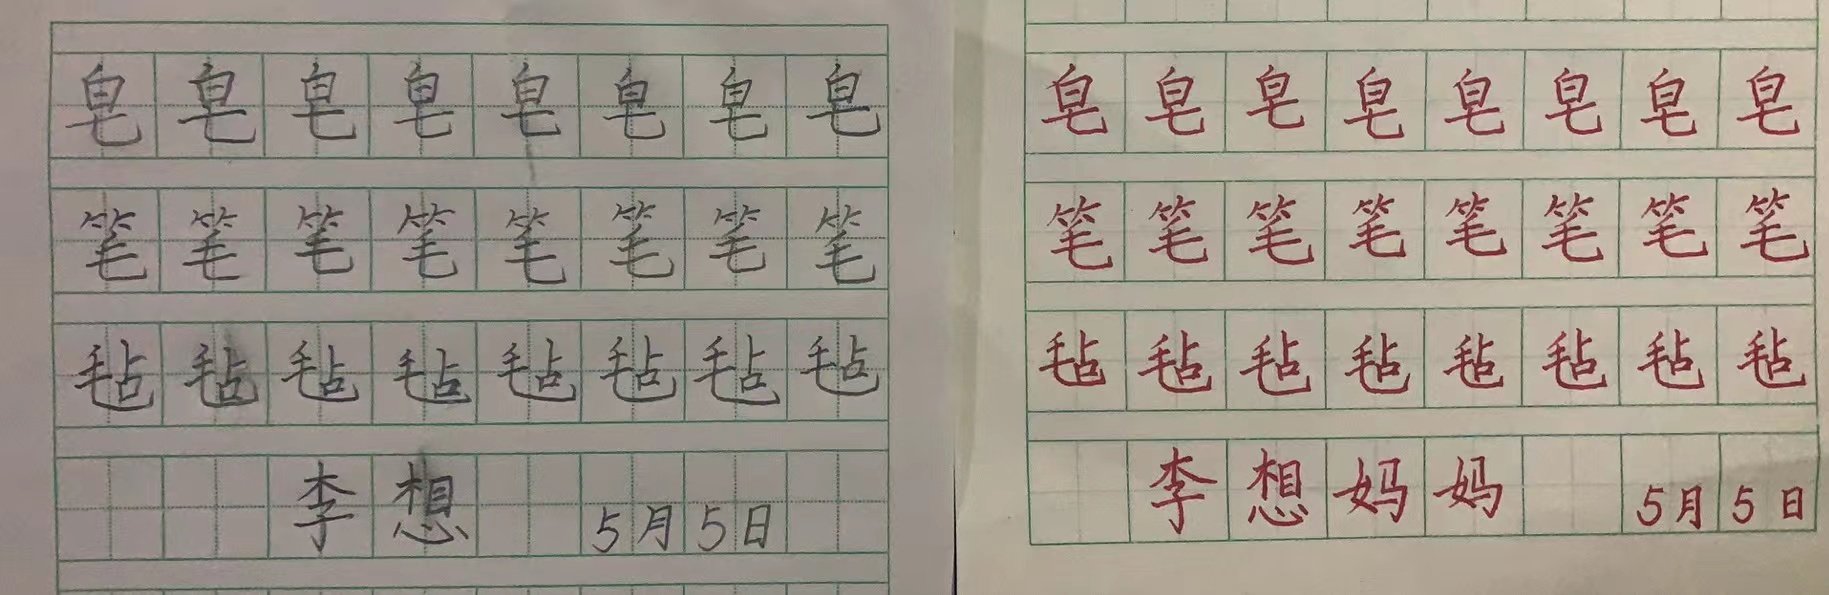 皂皂皂皂皂皂皂皂
笔笔笔笔笔笔笔笔
毡毡毡毡毡毡毡毡
李想 5月5日
皂皂皂皂皂皂皂皂
笔笔笔笔笔笔笔笔
毡毡毡毡毡毡毡毡
李想妈妈 5月5日